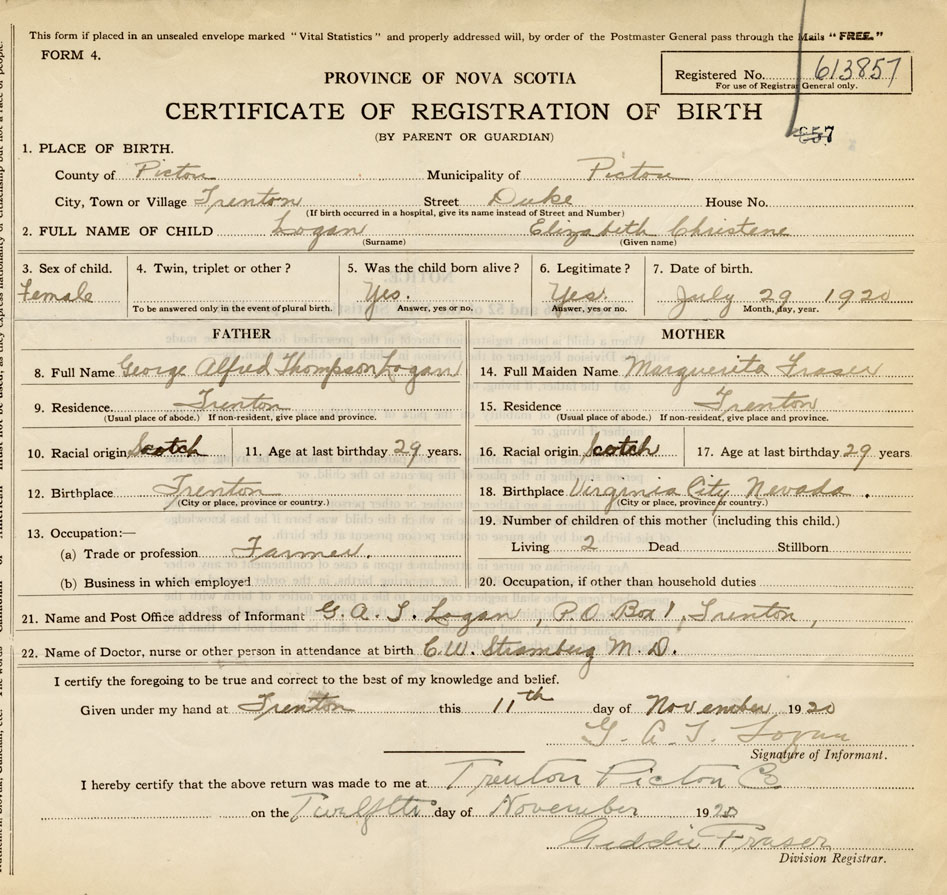 This form if placed in an unsealed envelope marked "Vital Statistics" and properly addressed will, by order of the Postmaster General pass through the Mails "FREE."
FORM 4.
PROVINCE OF NOVA SCOTIA
Registered No. 613857
For use of Registrar General only.
CERTIFICATE OF REGISTRATION OF BIRTH
(BY PARENT OR GUARDIAN)
657
1. PLACE OF BIRTH.
County of Pictou Municipality of Pictou
City, Town or Village Trenton Street Duke House No.
(If birth occurred in a hospital, give its name instead of Street and Number)
2. FULL NAME OF CHILD Logan Elizabeth Christene
(Surname) (Given name)
3. Sex of child. 4. Twin, triplet or other? 5. Was the child born alive? 6. Legitimate? 7. Date of birth.
Female Yes. Yes. July 29 1920
To be answered only in the event of plural birth. Answer, yes or no. Answer, yes or no. Month, day, year.
FATHER MOTHER
8. Full Name George Alfred Thompson Logan 14. Full Maiden Name Marguerita Fraser
9. Residence Trenton 15. Residence Trenton
(Usual place of abode.) If non-resident, give place and province. (Usual place of abode.) If non-resident, give place and province.
10. Racial origin Scotch 11. Age at last birthday 29 years. 16. Racial origin Scotch 17. Age at last birthday 29 years
12. Birthplace Trenton 18. Birthplace Virginia City Nevada.
(City or place, province or country.) (City or place, province or country.)
13. Occupation:— 19. Number of children of this mother (including this child.)
(a) Trade or profession Farmer. Living 2 Dead Stillborn
(b) Business in which employed 20. Occupation, if other than household duties
21. Name and Post Office address of Informant G. A. T. Logan, P.O. Box 1, Trenton,
22. Name of Doctor, nurse or other person in attendance at birth C. W. Stramberg M. D.
I certify the foregoing to be true and correct to the best of my knowledge and belief.
Given under my hand at Trenton this 11th day of November 1920
G. A. T. Logan
Signature of Informant.
I hereby certify that the above return was made to me at Trenton Pictou Co
on the Twelfth day of November 1920
Geddie Fraser
Division Registrar.